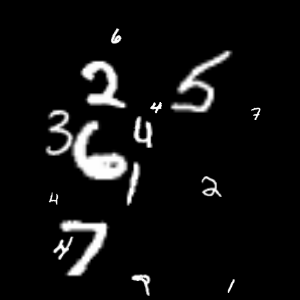 6
2 5
4 7
3 6 4
1 2
4
4 7
9 1